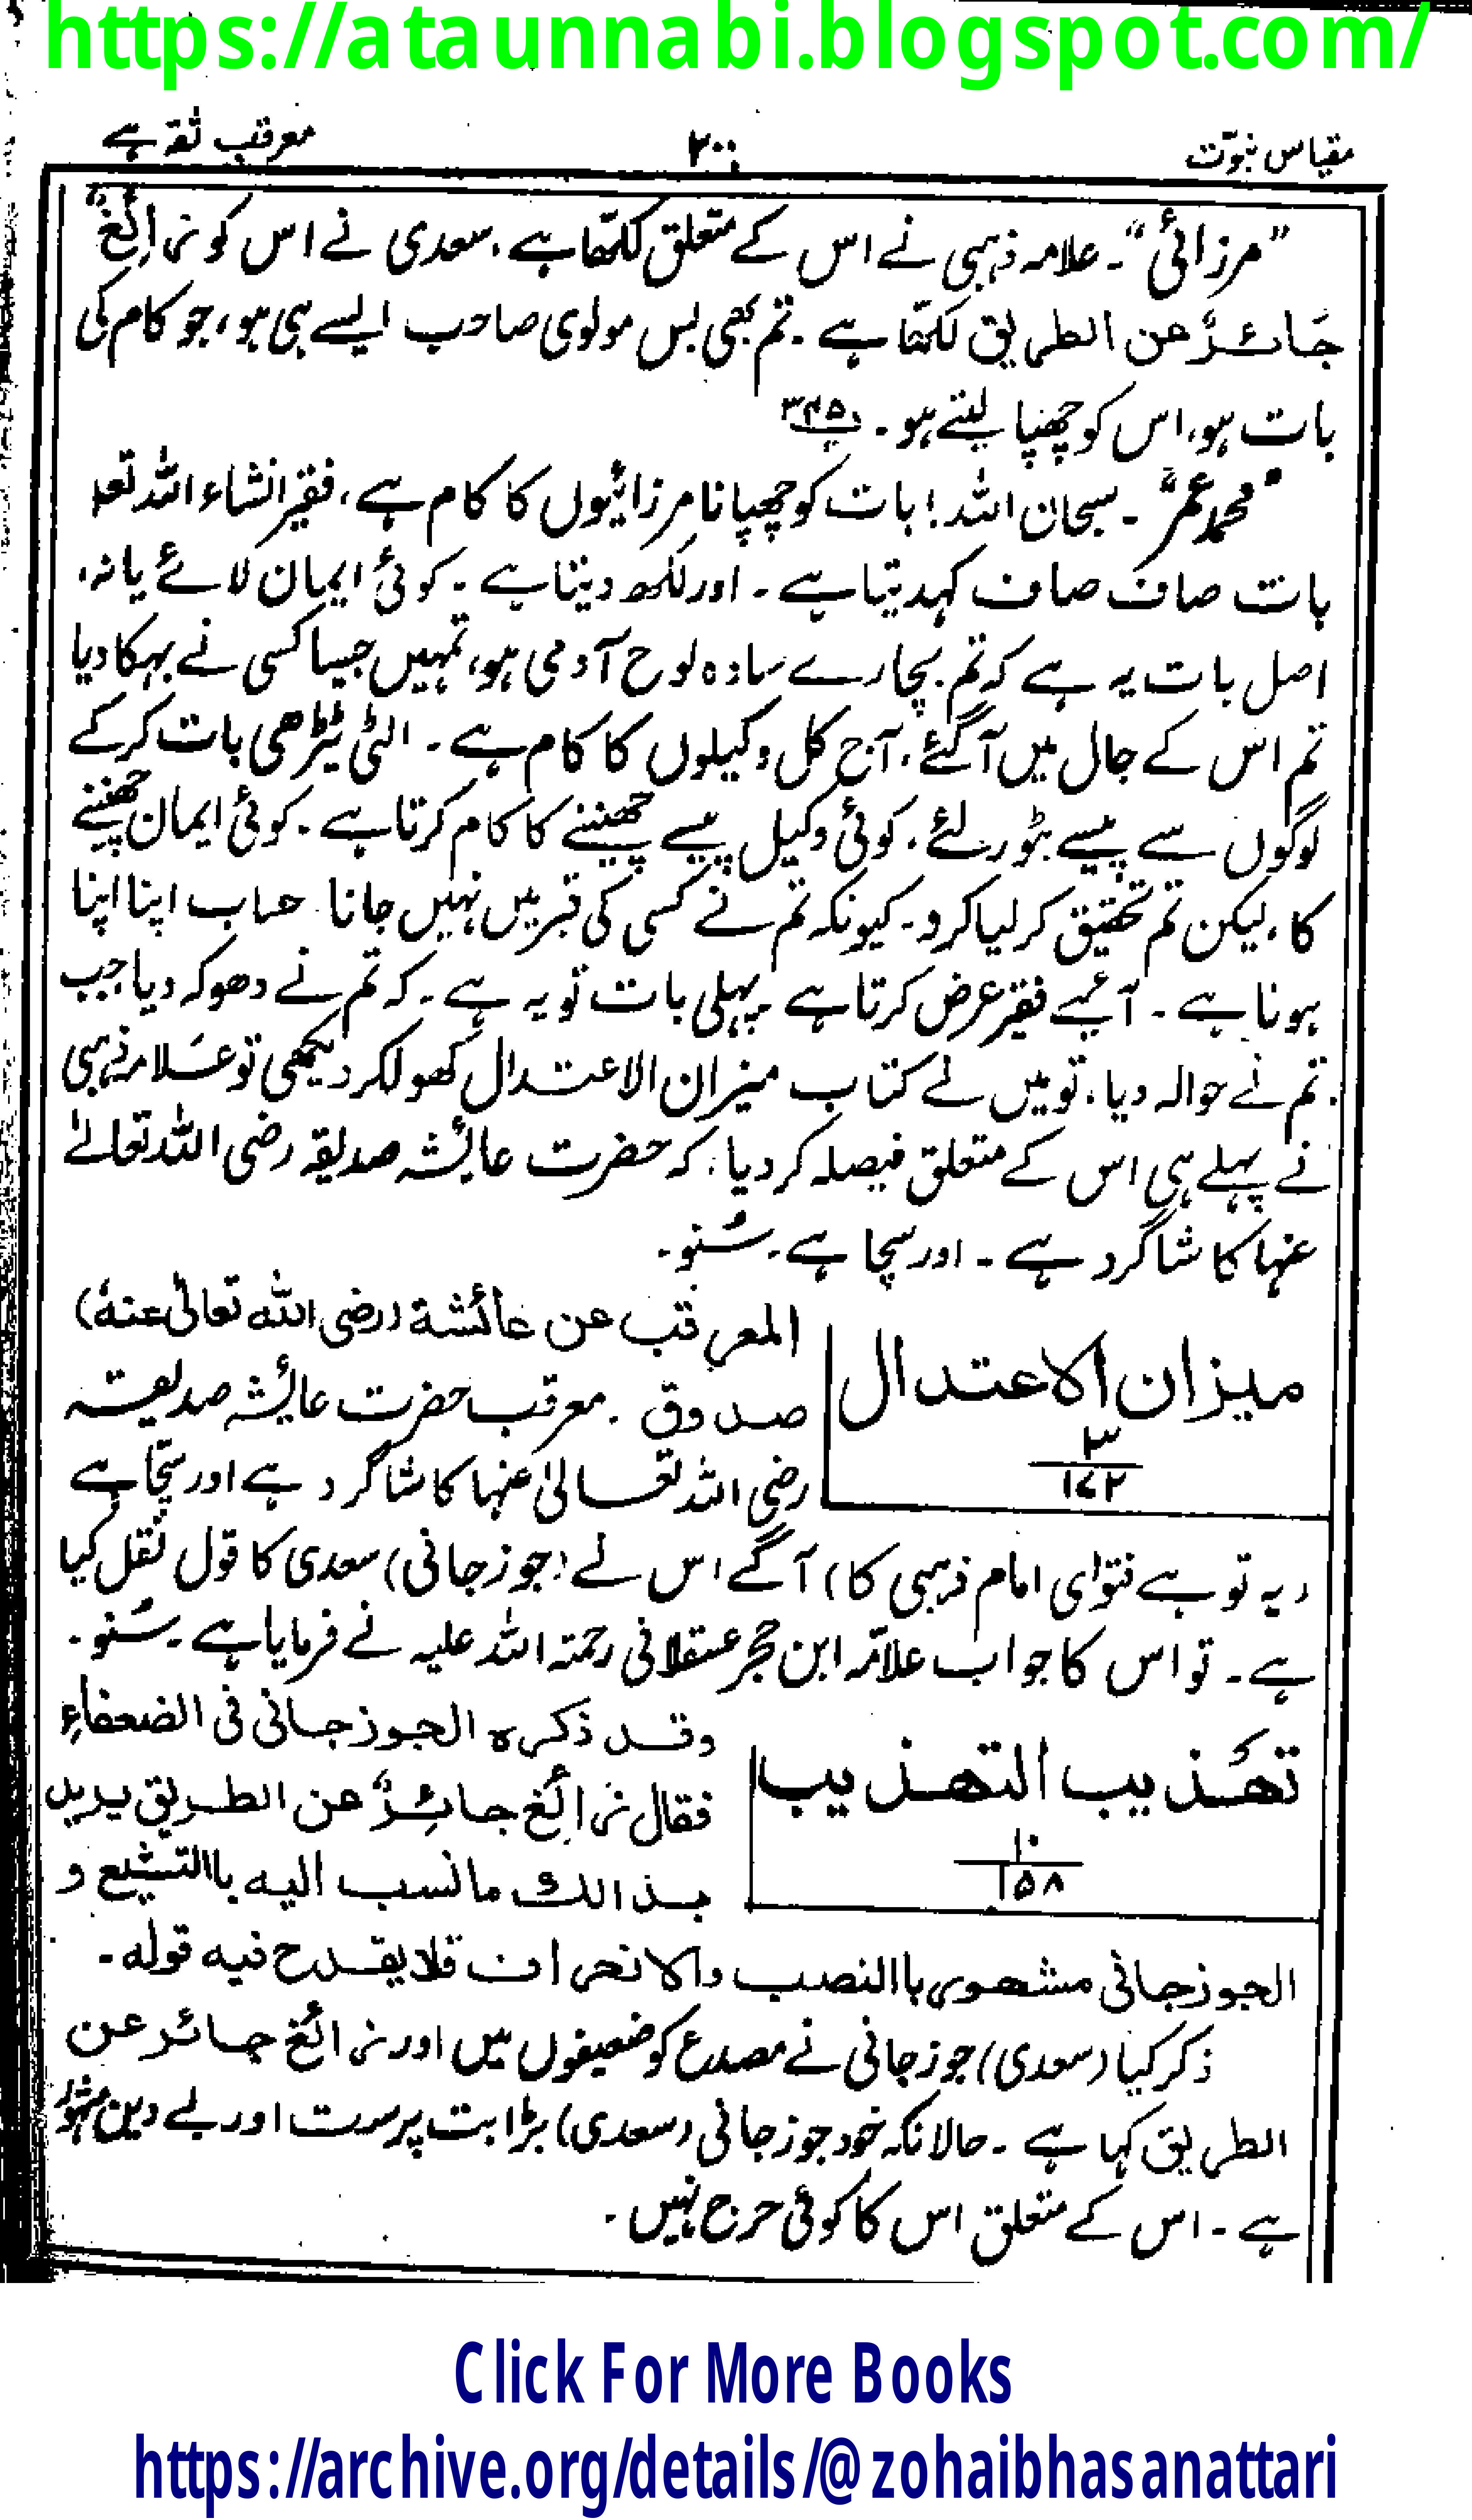 https://ataunnabi.blogspot.com/
مقیاس نبوّت ۲۰۰ معرقب ثقہ ہے
”مرزائی“۔ علامہ ذہبی نے اس کے متعلق لکھا ہے، سعدی نے اس کو زائغ
جَائرٌ عن الطریق لکھا ہے ۔ تم بھی بس مولوی صاحب ایسے ہی ہو، جو کام کی
بات ہو، اس کو چھپا لیتے ہو ۔
”محمد عمر“ ۔ سبحان اللہ ! بات کو چھپانا مرزائیوں کا کام ہے، فقیر انشاء اللہ تعا
بات صاف صاف کہدیتا ہے ۔ اور لکھ دیتا ہے ۔ کوئی ایمان لائے یا نہ،
اصل بات یہ ہے کہ تم بچارے سادہ لوح آدمی ہو، تمہیں جیسا کسی نے بہکا دیا
تم اس کے جال میں آگئے ، آج کل وکیلوں کا کام ہے ۔ الٹی ٹیڑھی بات کر کے
لوگوں سے پیسے بٹور لئے ، کوئی وکیل پیسے چھیننے کا کام کرتا ہے ۔ کوئی ایمان چھیننے
کا، لیکن تم تحقیق کر لیا کرو ۔ کیونکہ تم نے کسی کی قبر میں نہیں جانا ۔ حساب اپنا اپنا
ہونا ہے ۔ آئیے فقیر عرض کرتا ہے ۔ پہلی بات تو یہ ہے ۔ کہ تم نے دھوکہ دیا جب
تم نے حوالہ دیا ، تو میں نے کتاب میزان الاعتدال کھولکر دیکھی تو عَلامہ ذہبی
نے پہلے ہی اس کے متعلق فیصلہ کر دیا ، کہ حضرت عائشہ صدیقہ رضی اللہ تعالےٰ
عنہا کا شاگرد ہے ۔ اور سچا ہے ۔ سُنو ۔
میزان الاعتدال
۳
۱۷۲
المعرقب عن عائشة (رضی اللہ تعالیٰ عنہٗ)
صدوق ۔ معرقب حضرت عائشہ صدیقہ
رضی اللہ تعالیٰ عنہا کا شاگرد ہے اور سچّا ہے
(یہ تو ہے فتوٰی امام ذہبی کا) آگے اس نے (جوزجانی) سعدی کا قول نقل کیا
ہے ۔ تو اس کا جواب علامہ ابن حجر عسقلانی رحمۃ اللہ علیہ نے فرمایا ہے ۔ سُنو ۔
تهَذیب التهذیب
۱۰
۱۵۸
وقد ذكره الجوزجانی فی الضعفاءِ
فقال زائغ جائرٌ عن الطریق یرید
بذالك مانسب الیه باالتشیع و
الجوزجانی مشهور باالنصب والانحراف فلا یقدح فیه قوله ۔
ذکر کیا (سعدی) جوزجانی نے مصدع کو ضعیفوں میں اور زائغ جائر عن
الطریق کہا ہے ۔ حالانکہ خود جوزجانی (سعدی) بڑا بت پرست اور بے دین مشہور
ہے ۔ اس کے متعلق اس کا کوئی حرج نہیں ۔
Click For More Books
https://archive.org/details/@zohaibhasanattari